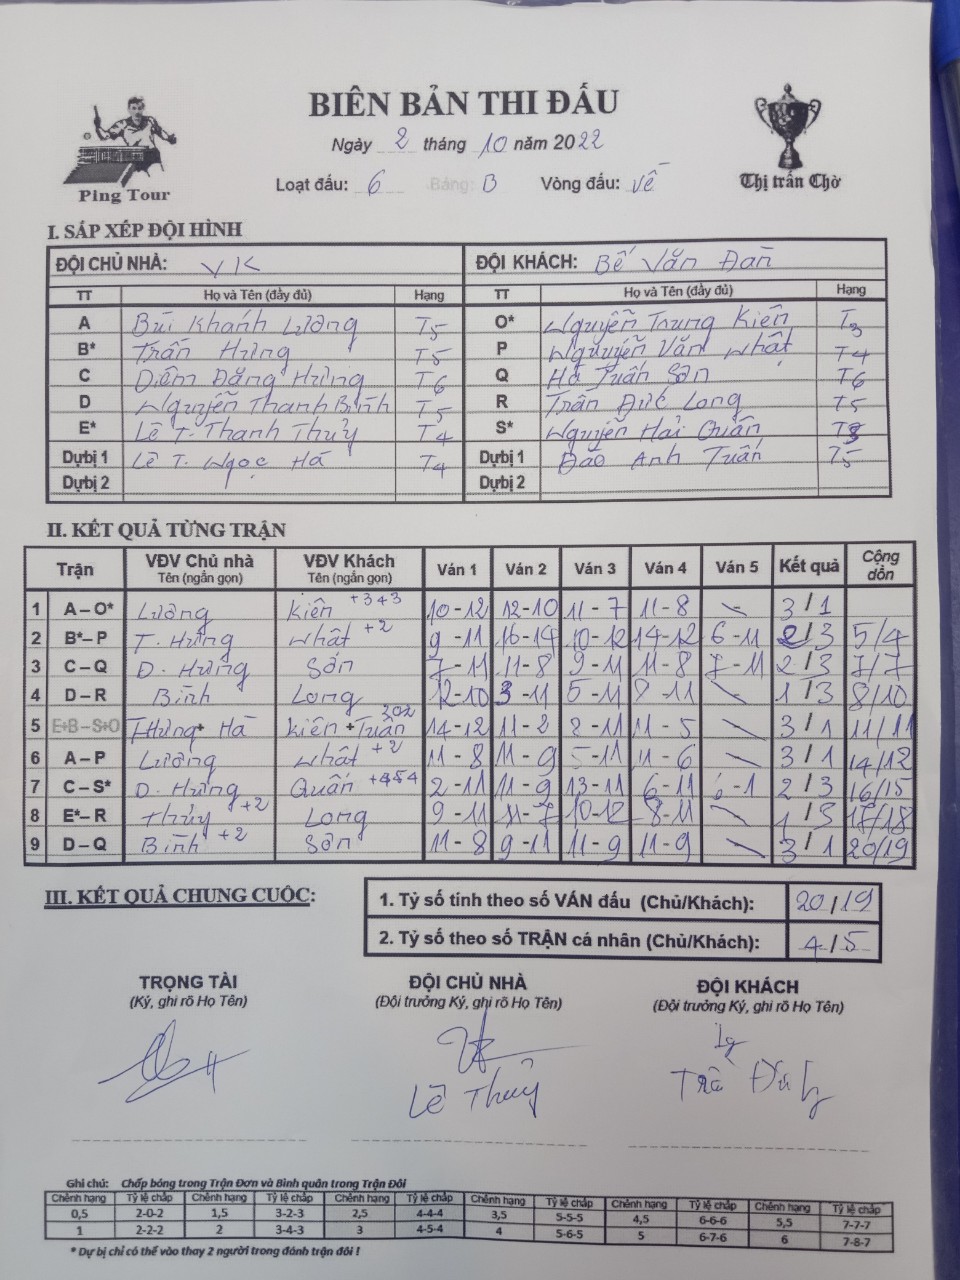 BIÊN BẢN THI ĐẤU
Ngày 2 tháng 10 năm 2022
Loạt đấu: 6 Bảng: B Vòng đấu: Về
Ping Tour
Thị trấn Chờ
I. SẮP XẾP ĐỘI HÌNH
ĐỘI CHỦ NHÀ: VK ĐỘI KHÁCH: Bế Văn Đàn
TT Họ và Tên (đầy đủ) Hạng TT Họ và Tên (đầy đủ) Hạng
A Bùi Khánh Lương T5 O* Nguyễn Trung Kiên T3
B* Trần Hưng T5 P Nguyễn Văn Nhật T4
C Diêm Đăng Hưng T6 Q Hà Tuấn Sơn T6
D Nguyễn Thanh Bình T5 R Trần Đức Long T5
E* Lê T. Thanh Thủy T4 S* Nguyễn Hải Quân
Dự bị 1 Lê T. Ngọc Hà T4 Dự bị 1 Đào Anh Tuấn T5
Dự bị 2 Dự bị 2
II. KẾT QUẢ TỪNG TRẬN
Trận VĐV Chủ nhà Tên (ngắn gọn) VĐV Khách Tên (ngắn gọn) Ván 1 Ván 2 Ván 3 Ván 4 Ván 5 Kết quả Cộng dồn
1 A – O* Lương Kiên +343 10-12 12-10 11-7 11-8 3/1
2 B* – P T. Hưng Nhật +2 9-11 16-14 10-12 14-12 6-11 2/3 5/4
3 C – Q D. Hưng Sơn 7-11 11-8 9-11 11-8 7-11 2/3 7/7
4 D – R Bình Long 12-10 3-11 5-11 9-11 1/3 8/10
5 E+B – S+O T Hưng + Hà Kiên + Tuấn 202 14-12 11-2 8-11 11-5 3/1 11/11
6 A – P Lương Nhật +2 11-8 11-9 5-11 11-6 3/1 14/12
7 C – S* D. Hưng Quân +454 2-11 11-9 13-11 6-11 2/3 16/15
8 E* – R Thủy +2 Long 9-11 11-7 10-12 8-11 1/3 17/18
9 D – Q Bình +2 Sơn 11-8 9-11 11-9 11-9 3/1 20/19
III. KẾT QUẢ CHUNG CUỘC:
1. Tỷ số tính theo số VÁN đấu (Chủ/Khách): 20/19
2. Tỷ số theo số TRẬN cá nhân (Chủ/Khách): 4/5
TRỌNG TÀI ĐỘI CHỦ NHÀ ĐỘI KHÁCH
(Ký, ghi rõ Họ Tên) (Đội trưởng Ký, ghi rõ Họ Tên) (Đội trưởng Ký, ghi rõ Họ Tên)
Lê Thủy
Ghi chú: Chấp bóng trong Trận Đơn và Bình quân trong Trận Đôi
Chênh hạng Tỷ lệ chấp Chênh hạng Tỷ lệ chấp Chênh hạng Tỷ lệ chấp Chênh hạng Tỷ lệ chấp Chênh hạng Tỷ lệ chấp Chênh hạng Tỷ lệ chấp
0,5 2-0-2 1,5 3-2-3 2,5 4-4-4 3,5 5-5-5 4,5 6-6-6 5,5 7-7-7
1 2-2-2 2 3-4-3 3 4-5-4 4 5-6-5 5 6-7-6 6 7-8-7
* Dự bị chỉ có thể vào thay 2 người trong đánh trận đôi !